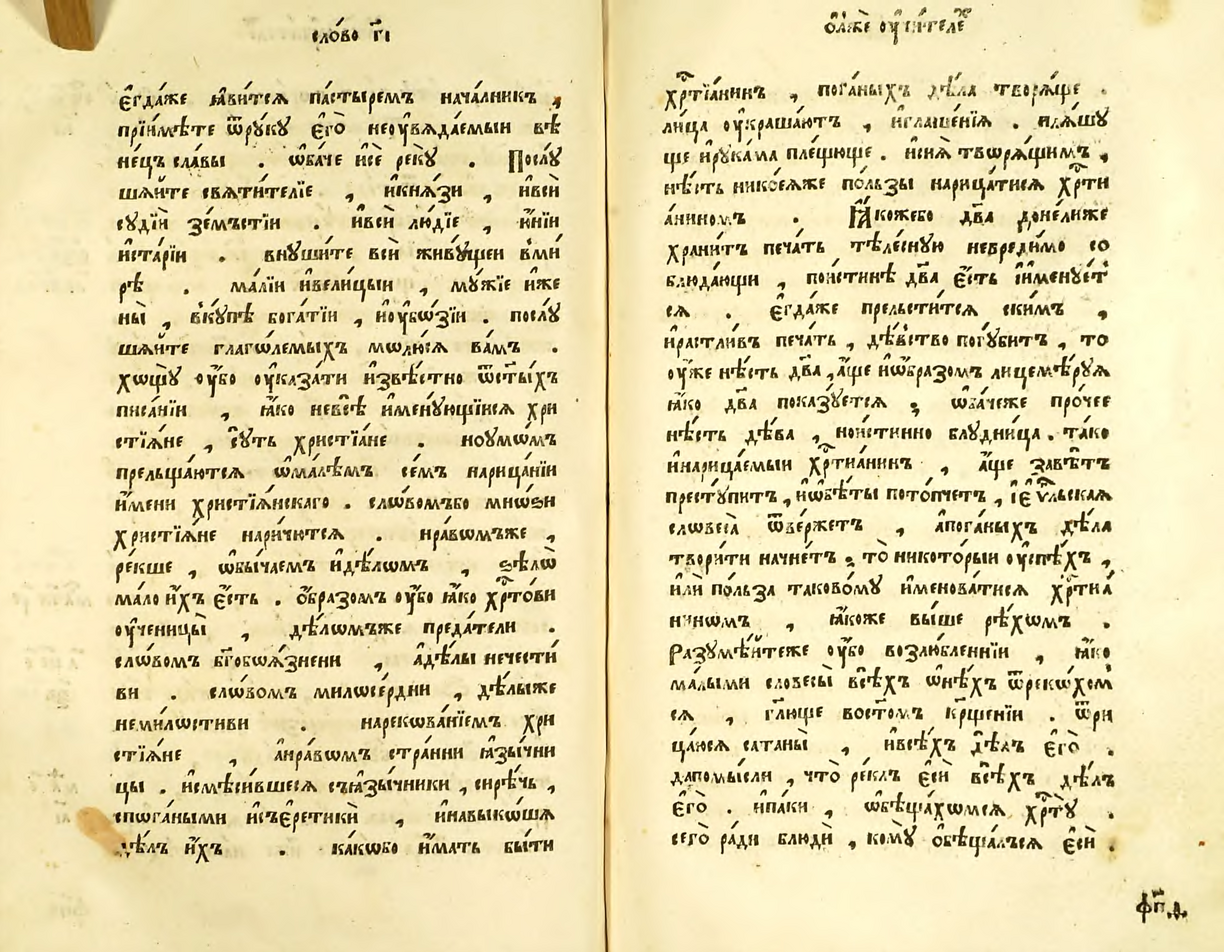 сло́во г҃і
є҆гда́же ꙗ҆ви́тсѧ па́стыремъ нача́лникъ ,
прїи́мѣте ѿрꙋкꙋ є҆го̀ неѹвѧда́емыи вѣ
не́цъ сла́вы . ѡ҆ба́че и҆сѐ рекꙋ̀ . Послꙋ
ша́йте свѧти́телїе , и҆кнѧ́зи , и҆всѝ
сꙋдїи̑ зе́мьстїи . и҆всѝ лю́дїе , ю҆́нїи
и҆ста́рїи . внꙋши́те всѝ живꙋ́щеи в̾ми
рѣ̀ . ма́лїи и҆вели́цыи , мꙋ́жїе и҆же
ны̀ , в̾кꙋ́пѣ бога́тїи , и҆ѹ҆бѡ́зїи . послꙋ
ша́йте глаго́лемыхъ молю́сѧ ва́мъ .
хощꙋ̀ ѹ҆́бо ѹ҆каза́ти и҆звѣ́стно ѿст҃ы́хъ
писа́нїи , ꙗ҆́ко невсѣ̀ и҆менꙋ́ющїисѧ хри
стїѧ́не , сꙋ́ть христїа́не . ноѹмо́мъ
прельща́ютсѧ ѡ҆ма́лѣмъ се́мъ нарица́нїи
и҆́мени христїѧ́нскаго . сло́вомъбо мно́ѕи
христїѧ́не наричю́тсѧ . нра́вомъже ,
ре́кше , ѡ҆бы́чаемъ и҆дѣ́ломъ , ѕѣлѡ̀
ма́ло и҆́хъ є҆́сть . ѻ҆́бразомъ ѹ҆́бо ꙗ҆́ко хрⷭ҇то́ви
ѹ҆ченицы̀ , дѣ́ломъже преда́тели .
сло́вомъ бг҃обоѧ́знени , а҆дѣ́лы нечести́
ви . сло́вомъ милосе́рдни , дѣ́лыже
неми́лостиви . нарекова́нїемъ хри
стїѧ́не , а҆нра́вомъ стра́нни ꙗ҆зы́чни
цы . и҆смѣси́вшесѧ съꙗ҆зы́чники , сирѣ́чь ,
спога́ными и҆съе҆ретикѝ , и҆навыко́ша
дѣ́лъ и҆́хъ . ка́кобо и҆́мать бы́ти
хрⷭ҇тїа́нинъ , пога́ныхъ дѣ́ла творѧ́ще .
ли́ца ѹ҆краша́ютъ , и҆глаше́нїѧ . и҆лѧ́шꙋ
ще и҆рꙋка́ма пле́щюще . и҆сиѧ̀ творѧ́щимъ ,
нѣ́сть нико́еѧже по́льзы нарица́тисѧ хрⷭ҇ти
а́ниномъ . Ꙗ҆́кожебо дв҃а доне́лиже
храни́тъ печа́ть тѣле́сную невреди́мо со
блюда́ющи , пои́стинѣ дв҃а є҆́сть и҆и҆менꙋ́ет
сѧ . є҆гда́же прельсти́тсѧ ски́мъ ,
и҆растли́въ печа́ть , дѣ́вство погꙋ́битъ , то
ѹ҆же́ нѣ́сть дв҃а , а҆́ще и҆ѡ҆́бразомъ лицемѣ́рꙋѧ
ꙗ҆́ко дв҃а показꙋ́етсѧ ; ѡ҆ба́чеже про́чее
нѣ́сть дѣ́ва , нои́стинно блꙋдни́ца . та́ко
и҆нарица́емыи хрⷭ҇тиа́нинъ , а҆́ще завѣ́тъ
престꙋ́питъ , и҆ѡ҆бѣ́ты пото́пчетъ , і҆е҆ѵⷢ҇льская
словеса̀ ѿве́ржетъ , а҆пога́ныхъ дѣ́ла
твори́ти начне́тъ . то̀ никото́рыи ѹ҆спѣ́хъ ,
и҆лѝ по́льза таково́мꙋ и҆менова́тисѧ хрⷭ҇тиа́
ниномъ , ꙗ҆́коже вы́ше рѣ́хомъ .
Разꙋмѣ́йтеже ѹ҆́бо возлю́бленнїи , ꙗ҆́ко
ма́лыми словесы̀ в̾сѣ́хъ ѡ҆нѣ́хъ ѿреко́хом
сѧ , гл҃юще восто́мъ кр҃ще́нїи . ѿри
ца́юсѧ сатаны̀ , и҆всѣ́хъ дѣ́лъ є҆гѡ̀ .
да помы́сли , что̀ ре́клъ є҆сѝ всѣ́хъ дѣ́лъ
є҆го̀ . и҆па́ки , ѡ҆бѣща́хомсѧ хрⷭ҇тꙋ̀ .
сего̀ ра́ди блюдѝ , комꙋ̀ ѻ҆бѣща́лъсѧ є҆сѝ .